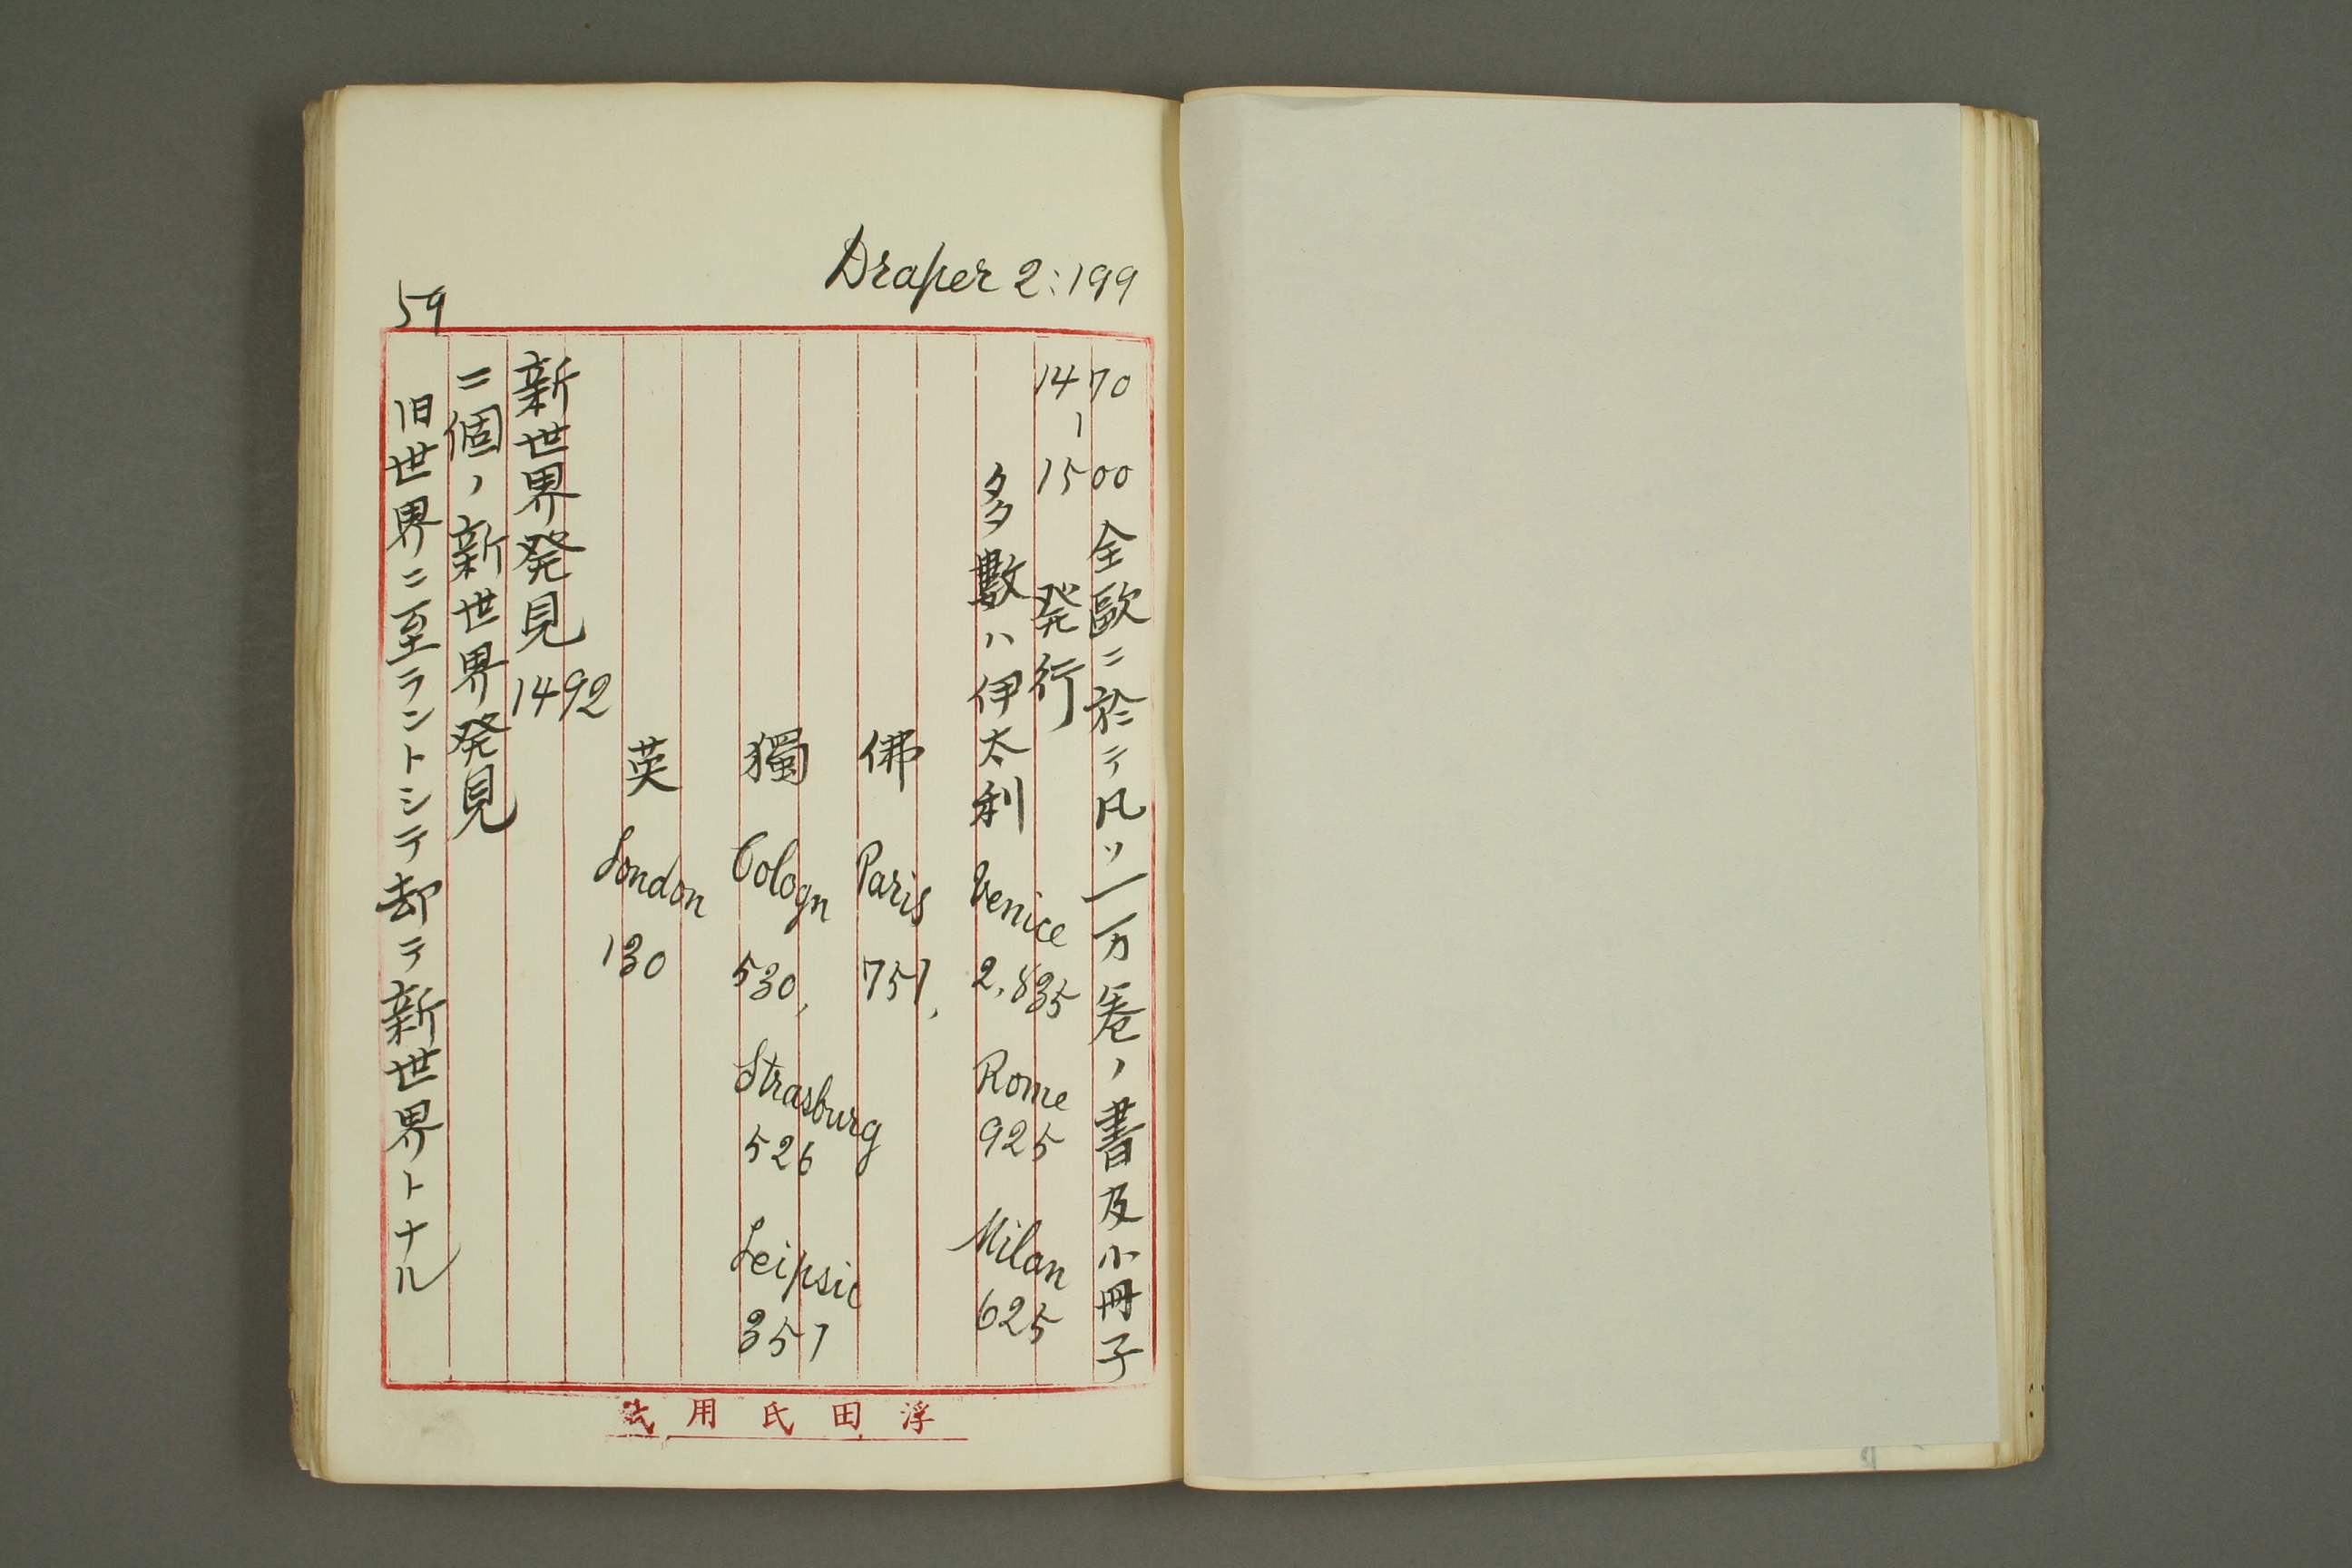 Draper 2:199
1470-1500 全歐ニ於テ凡ソ一万巻ノ書及小冊子
発行
多數ハ伊太利 Venice 2,835 Rome 925 Milan 625
佛 Paris 751,
獨 Cologn 530, Strasburg 526 Leipsic 351
英 London 130
新世界発見 1492
二個ノ新世界発見
旧世界ニ至ラントシテ却テ新世界トナル
59
浮田氏用